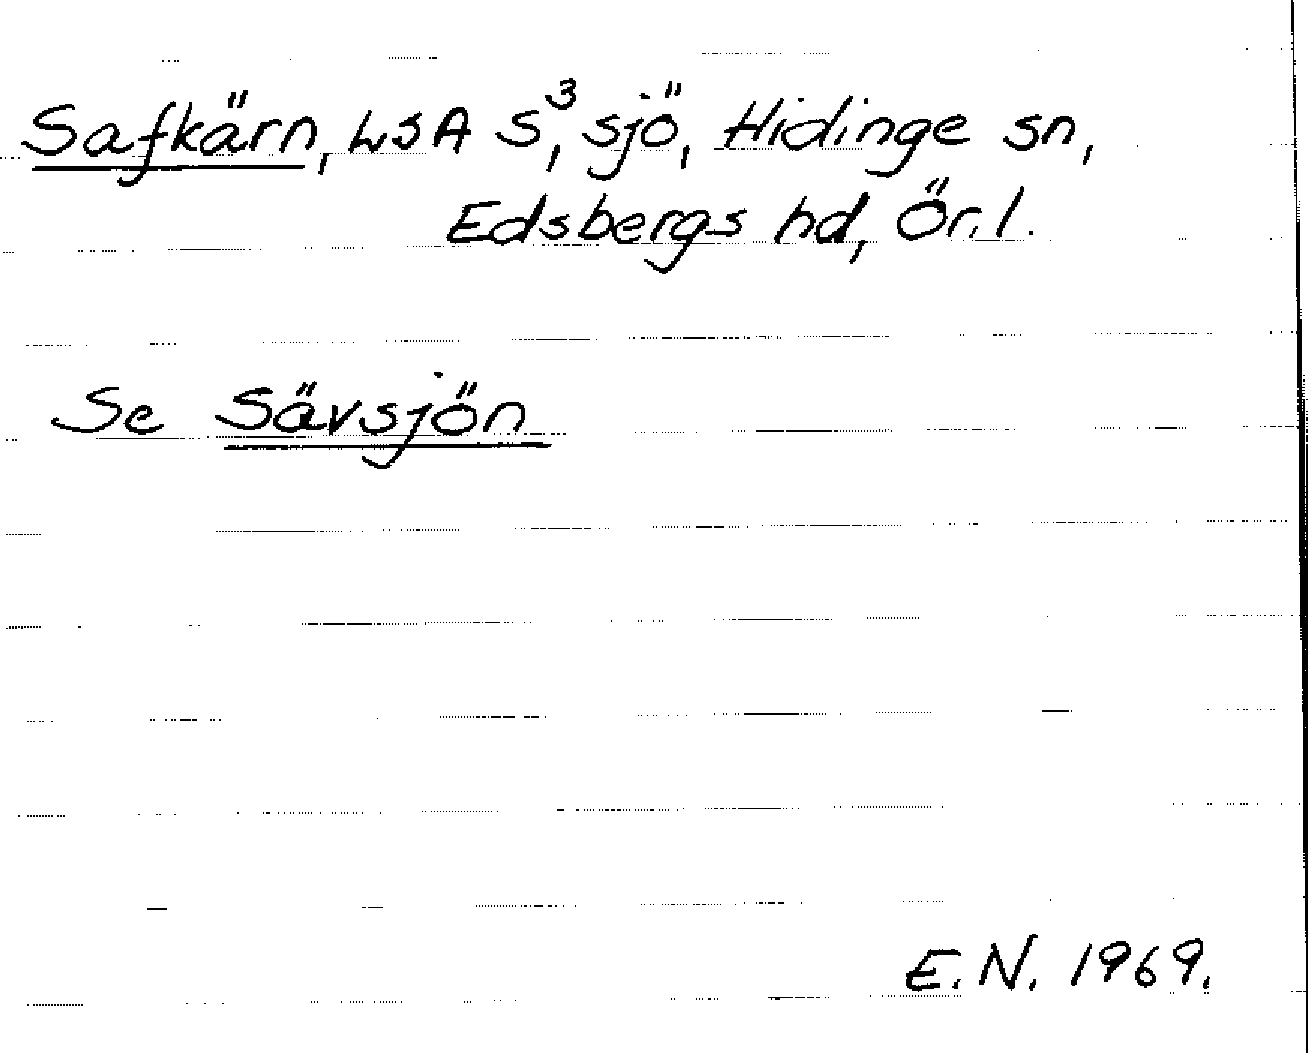 Safkärn, LSA S³, sjö, Hidinge sn,
Edsbergs hd, Ör.l.
Se Sävsjön
E.N. 1969.